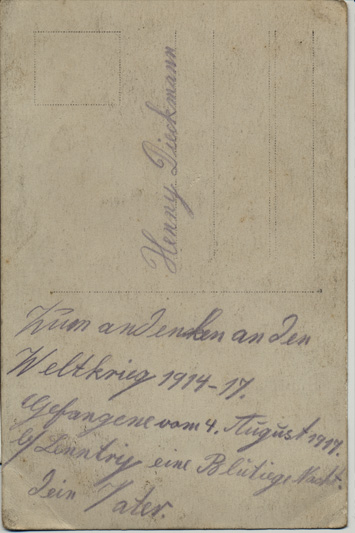 Henny Dieckmann
Zum andenken an den
Weltkrieg 1914-17.
Gefangene vom 4. August 1917.
eine Blutige Nacht.
Dein Vater.